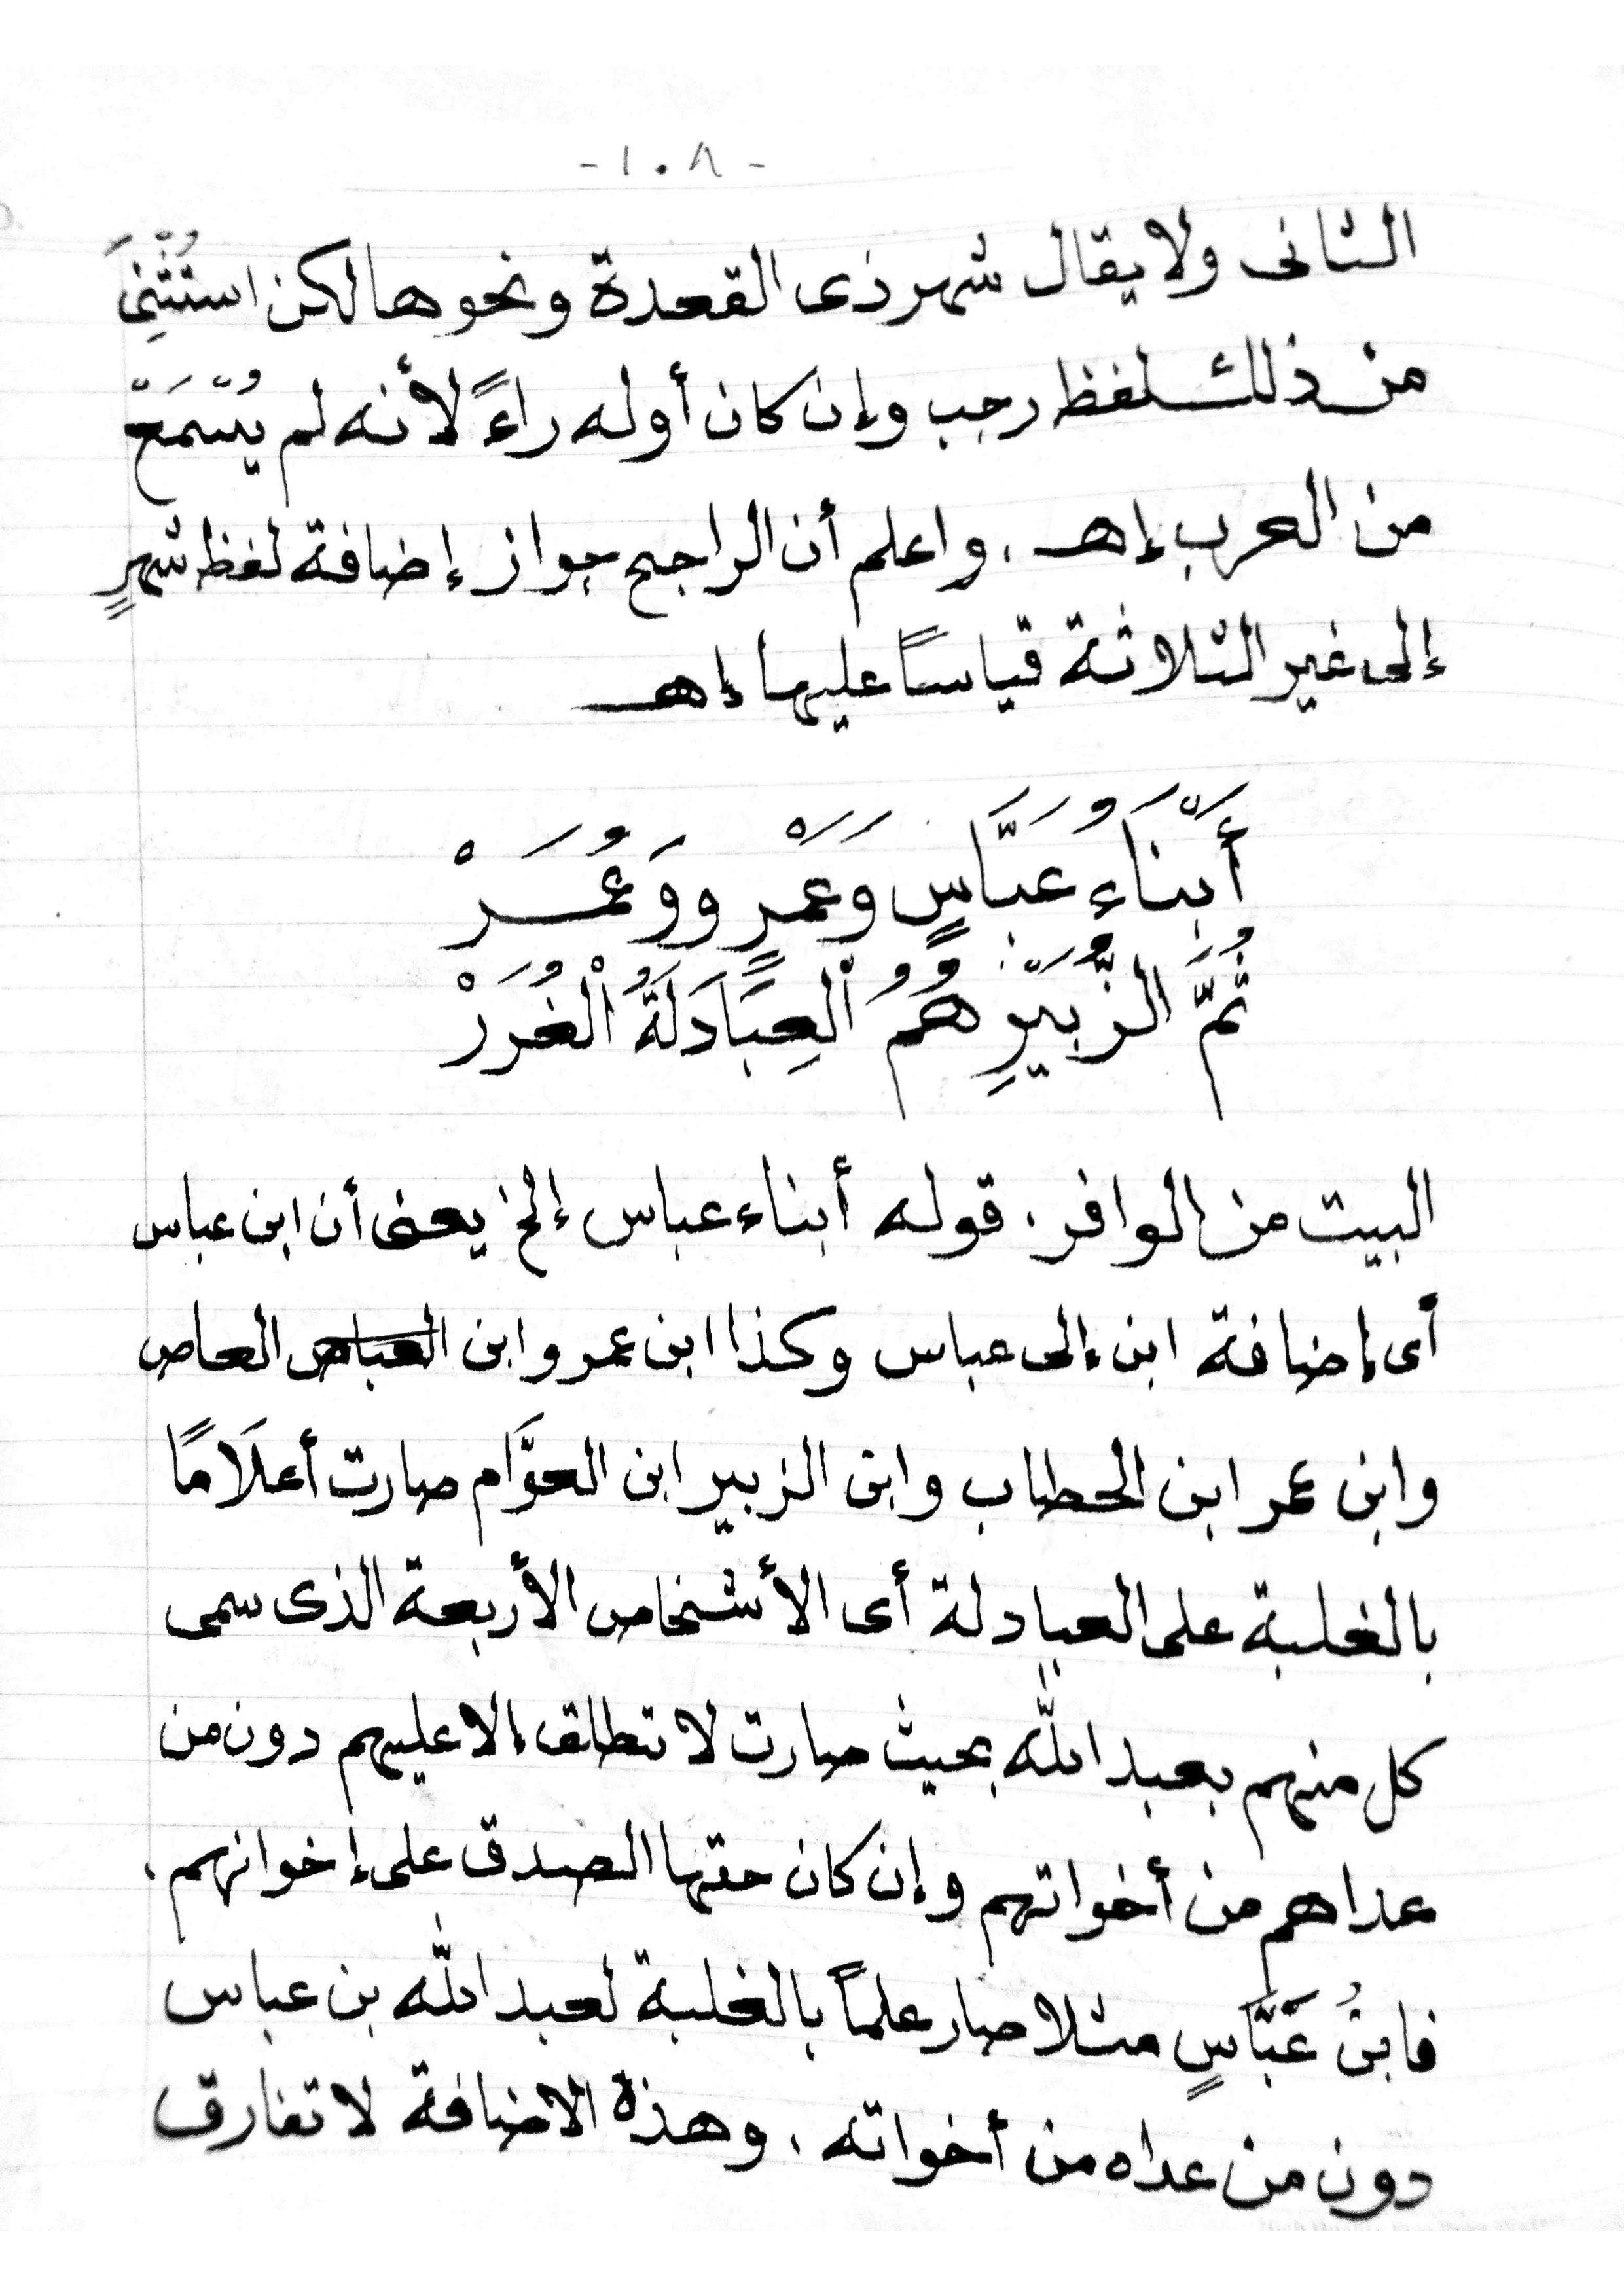 -١٠٨-
الثانى ولا يقال شهر ذى القعدة ونحوها لكن استُثْنِىَ
من ذلك لفظ رجب وإن كان أوله راءً لأنه لم يُسْمَعْ
من العرب إهـ . واعلم أن الراجح جواز إضافة لفظ شهرٍ
إلى غير الثلاثة قياساً عليها إهـ
أَبْنَاءُ عَبَّاسٍ وَعَمْرٍو وَعُمَرْ
ثُمَّ الزُّبَيْرِ هُمُ الْعِبَادَلَةُ الْغُرَرْ
البيت من الوافر . قوله أبناء عباس إلخ يعنى أن ابن عباس
أى إضافة ابن إلى عباس وكذا ابن عمر وابن العاص
وابن عمر ابن الخطاب وابن الزبير ابن العوَّام صارت أعلَامًا
بالغلبة على العبادلة أى الأشخاص الأربعة الذى سمى
كل منهم بعبد اللّٰه بحيث صارت لا تطلق إلا عليهم دون من
عداهم من أخواتهم وإن كان حقها الصدق على إخوانهم .
فابنُ عَبَّاسٍ مثلا صار علماً بالغلبة لعبد اللّٰه بن عباس
دون من عداه من أخواته . وهذه الاضافة لا تفارق